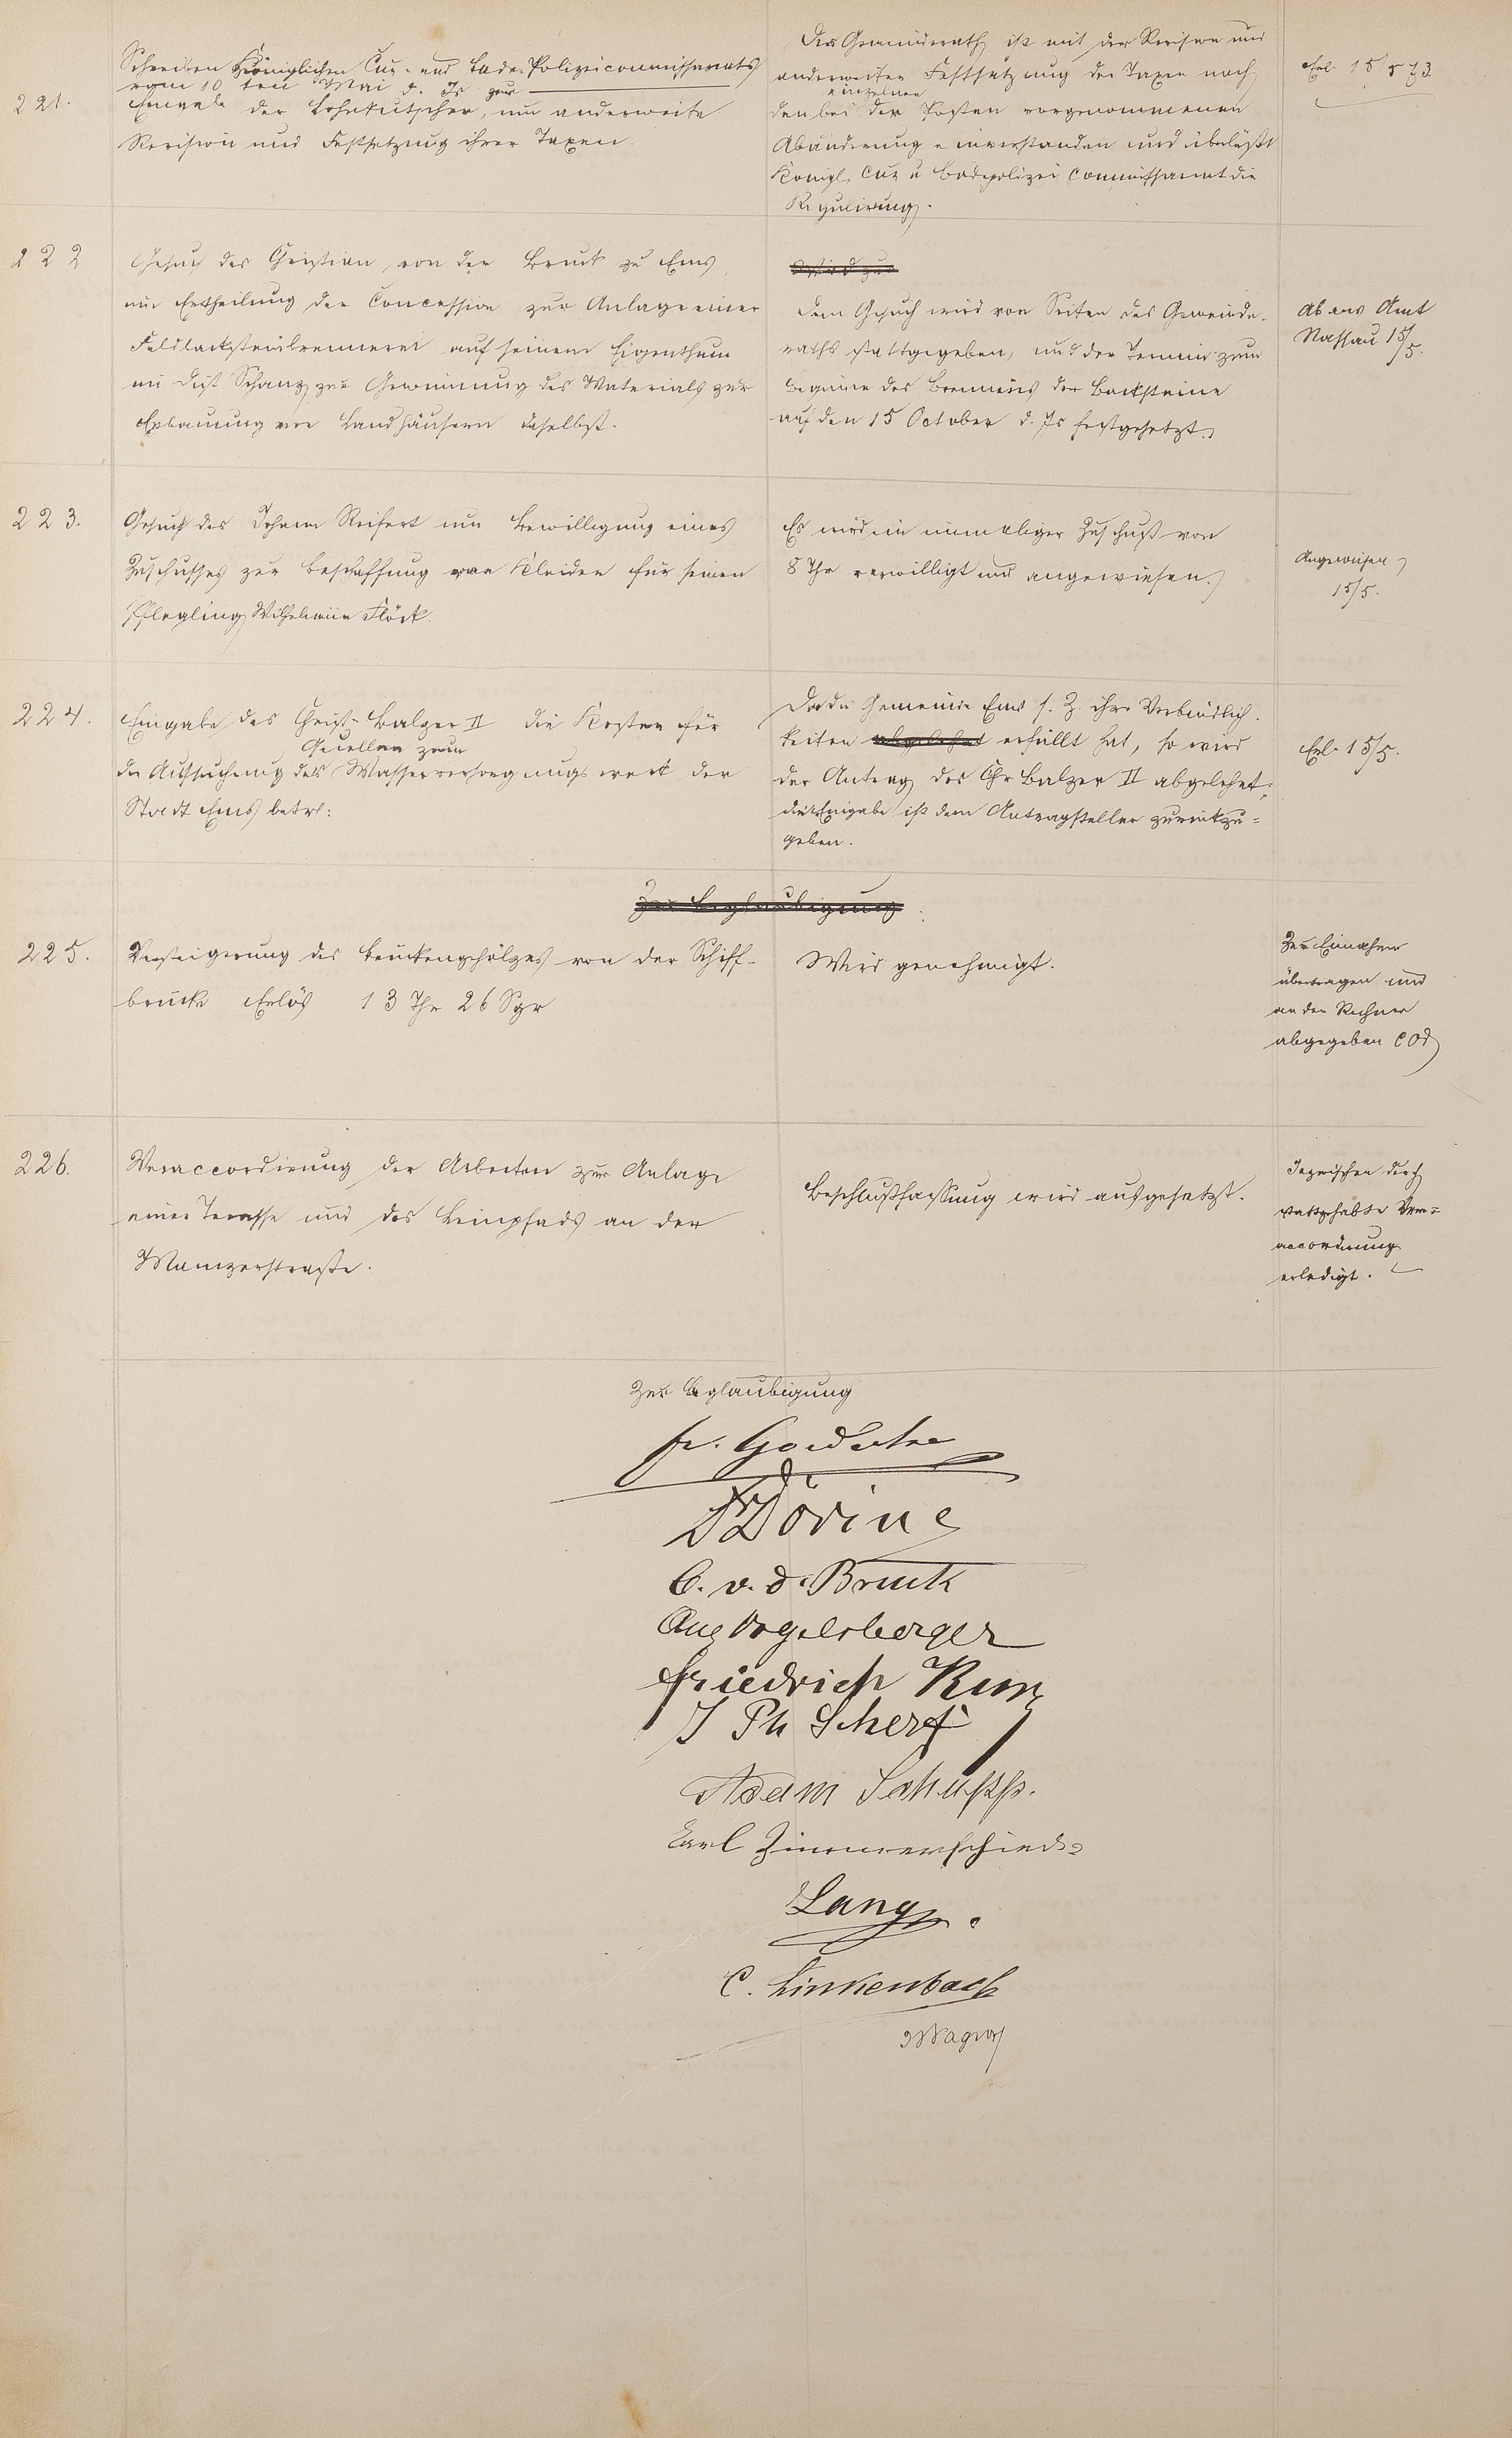 221.
Schreiben Königlichen Cur- und Bade-Polizeicommissariats
vom 10ten Mai d. Js zur
Eingabe der Lohnkutscher, um anderweite
Revision und Festsetzung ihrer Taxen.
Der Gemeinderath ist mit der Revision und
anderweiten Festsetzung der Taxen nach
einzelnen
den bei den Posten vorgenommenen
Abänderung einverstanden und überläßt
Königl. Cur u Badepolizei Commissariat die
Regulirung.
Erl. 15/5 73
222
Gesuch des Christian von der Bruck zu Ems,
um Ertheilung der Concession zur Anlage einer
Feldbacksteinbrennerei auf seinem Eigenthum
im Dist Schanz zur Gewinnung des Materials zur
Erbauung von Landhäusern daselbst.
Wird zur
Dem Gesuch wird von Seiten des Gemeinde-
raths stattgegeben, und der Termin zum
Beginne des Brennens der Backsteine
auf den 15 October d. Js festgesetzt.
Ab ans Amt
Nassau 15/5.
223.
Gesuch des Johann Reifert um Bewilligung eines
Zuschusses zur Beschaffung von Kleider für seinen
Pflegling Wilhelmine Flöck.
Es wird ein einmaliger Zuschuß von
8 Thr verwilligt und angewiesen.
Angewiesen
15/5.
224.
Eingabe des Christ. Balzer II die Kosten für
Quellen zum
die Aufsuchung des Wasserversorgungswerk der
Stadt Ems betr:
Da die Gemeinde Ems s. Z. ihre Verbindlich-
keiten abgelehnt erfüllt hat, so wird
der Antrag des Chr Balzer II abgelehnt;
die Eingabe ist dem Antragsteller zurückzu=
geben.
Erl. 15/5.
Zur Beglaubigung
225.
Versteigerung des Brückengehölzes von der Schiff-
brücke Erlös 13 Thr 26 Sgr
Wird genehmigt.
Zur Einnahme
übertragen und
an den Rechner
abgegeben
226.
Veraccordirung der Arbeiten zur Anlage
einer Terasse und des Leinpfads an der
Mainzerstraße.
Beschlußfassung wird ausgesetzt.
Inzwischen durch
stattgehabte Ver=
accordirung
erledigt.
Zur Beglaubigung
C. v. d. Bruck
Aug Vogelsberger
Friedrich Kunz
J Ph Scherf
Adam Schupp.
Karl Zimmerschied
Lang.
C. Linkenbach
Wagner